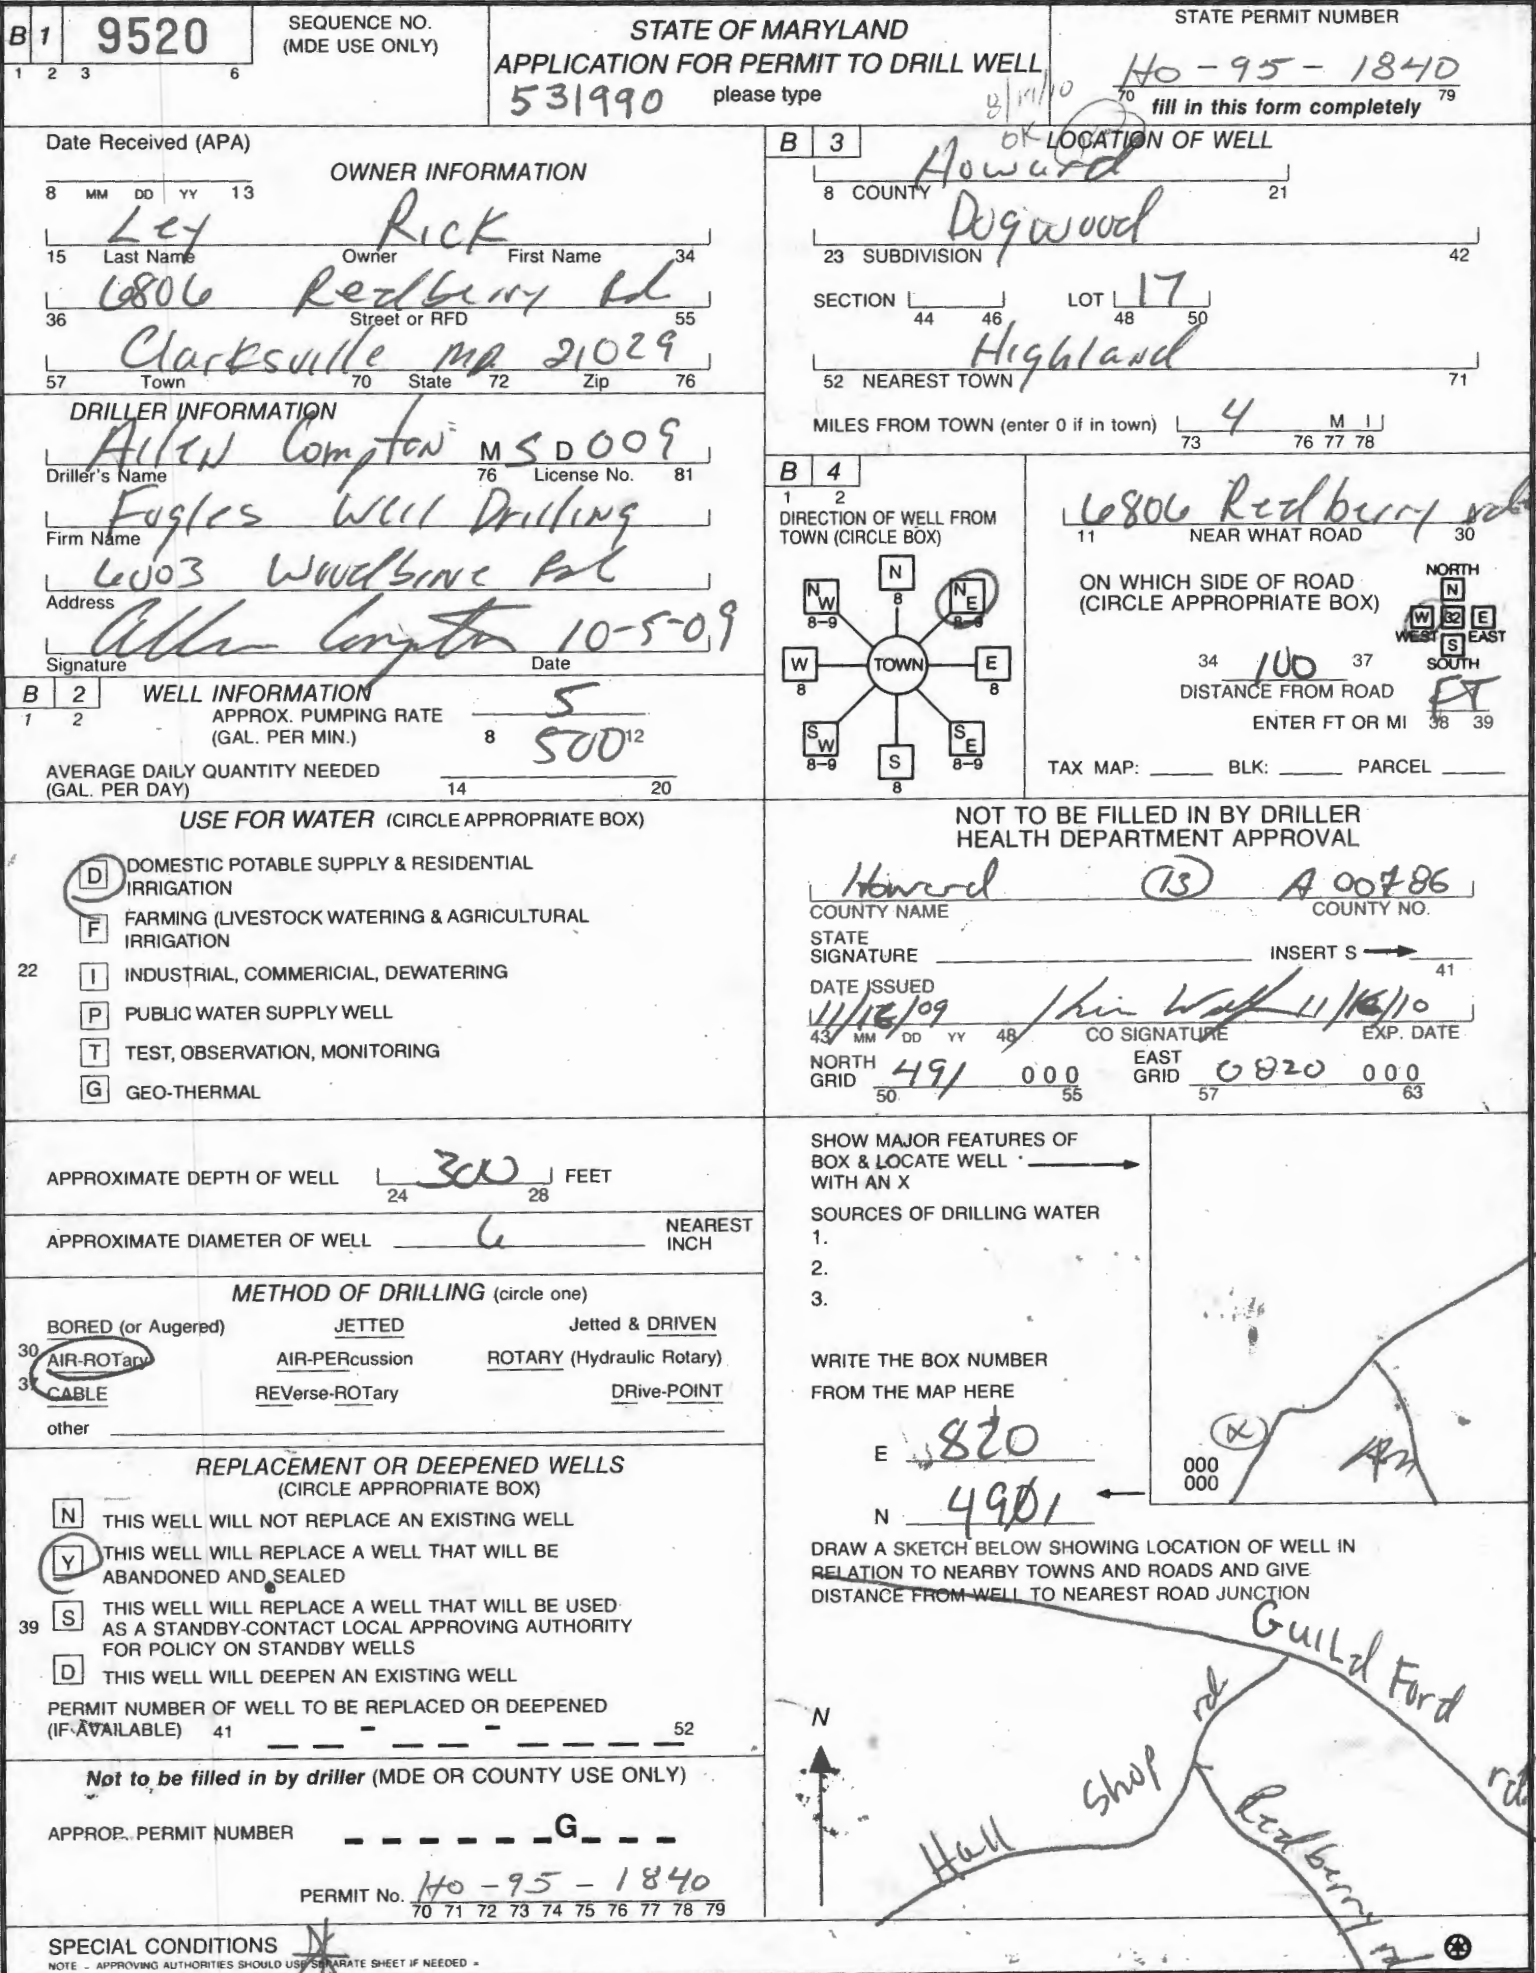 B 1 9520
1 2 3 6
SEQUENCE NO.
(MDE USE ONLY)
STATE OF MARYLAND
APPLICATION FOR PERMIT TO DRILL WELL
531990 please type
STATE PERMIT NUMBER
Ho - 95 - 1840
70 79
fill in this form completely
8/19/10
OK
Date Received (APA)
8 MM DD YY 13
OWNER INFORMATION
Ley Rick
15 Last Name Owner First Name 34
6806 Redberry Rd
36 Street or RFD 55
Clarksville MD 21029
57 Town 70 State 72 Zip 76
DRILLER INFORMATION
Allen Compton M S D 009
Driller's Name 76 License No. 81
Fogles Well Drilling
Firm Name
6003 Woodbine Rd
Address
Allen Compton 10-5-09
Signature Date
B 2 WELL INFORMATION
1 2
APPROX. PUMPING RATE 5
(GAL. PER MIN.) 8 12
500
AVERAGE DAILY QUANTITY NEEDED
(GAL. PER DAY) 14 20
USE FOR WATER (CIRCLE APPROPRIATE BOX)
D DOMESTIC POTABLE SUPPLY & RESIDENTIAL
IRRIGATION
F FARMING (LIVESTOCK WATERING & AGRICULTURAL
IRRIGATION
22 I INDUSTRIAL, COMMERICIAL, DEWATERING
P PUBLIC WATER SUPPLY WELL
T TEST, OBSERVATION, MONITORING
G GEO-THERMAL
APPROXIMATE DEPTH OF WELL 300 FEET
24 28
APPROXIMATE DIAMETER OF WELL 6 NEAREST
INCH
METHOD OF DRILLING (circle one)
BORED (or Augered) JETTED Jetted & DRIVEN
30 AIR-ROTary AIR-PERcussion ROTARY (Hydraulic Rotary)
37 CABLE REVerse-ROTary DRive-POINT
other
REPLACEMENT OR DEEPENED WELLS
(CIRCLE APPROPRIATE BOX)
N THIS WELL WILL NOT REPLACE AN EXISTING WELL
Y THIS WELL WILL REPLACE A WELL THAT WILL BE
ABANDONED AND SEALED
39 S THIS WELL WILL REPLACE A WELL THAT WILL BE USED
AS A STANDBY-CONTACT LOCAL APPROVING AUTHORITY
FOR POLICY ON STANDBY WELLS
D THIS WELL WILL DEEPEN AN EXISTING WELL
PERMIT NUMBER OF WELL TO BE REPLACED OR DEEPENED
(IF AVAILABLE) 41 - - 52
Not to be filled in by driller (MDE OR COUNTY USE ONLY)
APPROP. PERMIT NUMBER G
PERMIT No. Ho - 95 - 1840
70 71 72 73 74 75 76 77 78 79
SPECIAL CONDITIONS
NOTE - APPROVING AUTHORITIES SHOULD USE SEPARATE SHEET IF NEEDED -
B 3 LOCATION OF WELL
Howard
8 COUNTY 21
Dogwood
23 SUBDIVISION 42
SECTION LOT 17
44 46 48 50
Highland
52 NEAREST TOWN 71
MILES FROM TOWN (enter 0 if in town) 4 M I
73 76 77 78
B 4
1 2
DIRECTION OF WELL FROM
TOWN (CIRCLE BOX)
N
8
NW NE
8-9 8-9
W TOWN E
8 8
SW SE
8-9 8-9
S
8
6806 Redberry rd
11 NEAR WHAT ROAD 30
ON WHICH SIDE OF ROAD
(CIRCLE APPROPRIATE BOX)
NORTH
N
W 32 E
WEST EAST
S
SOUTH
34 100 37
DISTANCE FROM ROAD
FT
ENTER FT OR MI 38 39
TAX MAP: BLK: PARCEL
NOT TO BE FILLED IN BY DRILLER
HEALTH DEPARTMENT APPROVAL
Howard 13 A 00786
COUNTY NAME COUNTY NO.
STATE
SIGNATURE INSERT S
41
DATE ISSUED
11/16/09 11/16/10
43 MM DD YY 48 CO SIGNATURE EXP. DATE
NORTH
GRID 491 000
50 55
EAST
GRID 0820 000
57 63
SHOW MAJOR FEATURES OF
BOX & LOCATE WELL
WITH AN X
SOURCES OF DRILLING WATER
1.
2.
3.
WRITE THE BOX NUMBER
FROM THE MAP HERE
E 820
N 4901
X
000
000
DRAW A SKETCH BELOW SHOWING LOCATION OF WELL IN
RELATION TO NEARBY TOWNS AND ROADS AND GIVE
DISTANCE FROM WELL TO NEAREST ROAD JUNCTION
N
Guild Ford rd
Hall Shop rd
Redberry rd